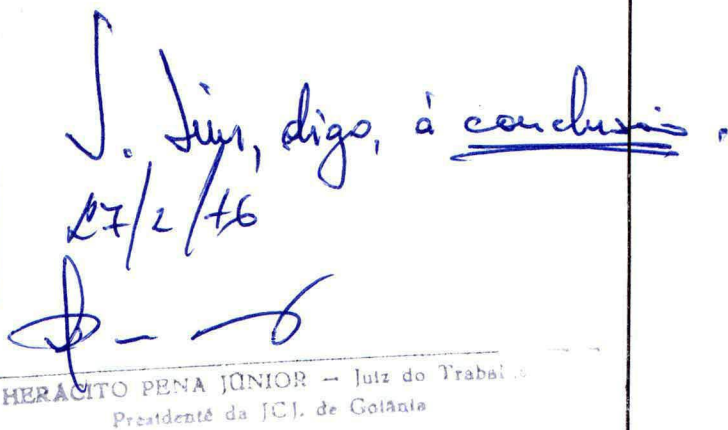 J. Sim, digo, à conclusão.
27/2/76
HERACITO PENA JÚNIOR — Juiz do Trabal
Presidente da JCJ. de Goiânia